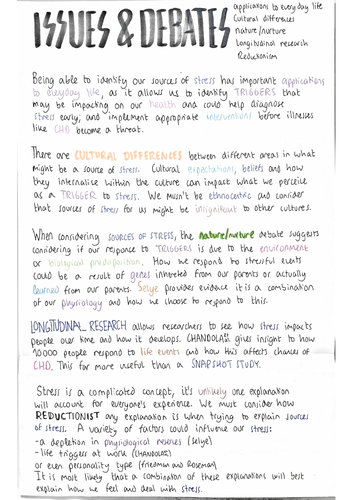 ISSUES & DEBATES
applications to everyday life
Cultural differences
nature/nurture
Longitudinal research
Reductionism
Being able to identify our sources of stress has important applications
to everyday life, as it allows us to identify TRIGGERS that
may be impacting on our health and could help diagnose
stress early, and implement appropriate interventions before illnesses
like CHD become a threat.
There are CULTURAL DIFFERENCES between different areas in what
might be a source of stress. Cultural expectations, beliefs and how
they internalise within the culture can impact what we perceive
as a TRIGGER to stress. We musn't be ethnocentric and consider
that sources of stress for us might be insignificant to other cultures.
When considering SOURCES OF STRESS, the nature/nurture debate suggests
considering if our response to TRIGGERS is due to the environment
or biological predisposition. How we respond to stressful events
could be a result of genes inhereted from our parents or actually
learned from our parents. Selye provides evidence it is a combination
of our physiology and how we choose to respond to this.
LONGITUDINAL RESEARCH allows researchers to see how stress impacts
people over time and how it develops. CHANDOLA gives insight to how
10000 people respond to life events and how this affects chances of
CHD. This far more useful than a SNAPSHOT STUDY.
Stress is a complicated concept, it's unlikely one explanation
will account for everyone's experience. We must consider how
REDUCTIONIST any explanation is when trying to explain sources
of stress. A variety of factors could influence our stress:
-a depletion in physiological reserves (Selye)
-life triggers at work (CHANDOLA)
or even personality type (Friedman and Rosenman)
It is most likely that a combination of these explanations will best
explain how we feel and deal with stress.